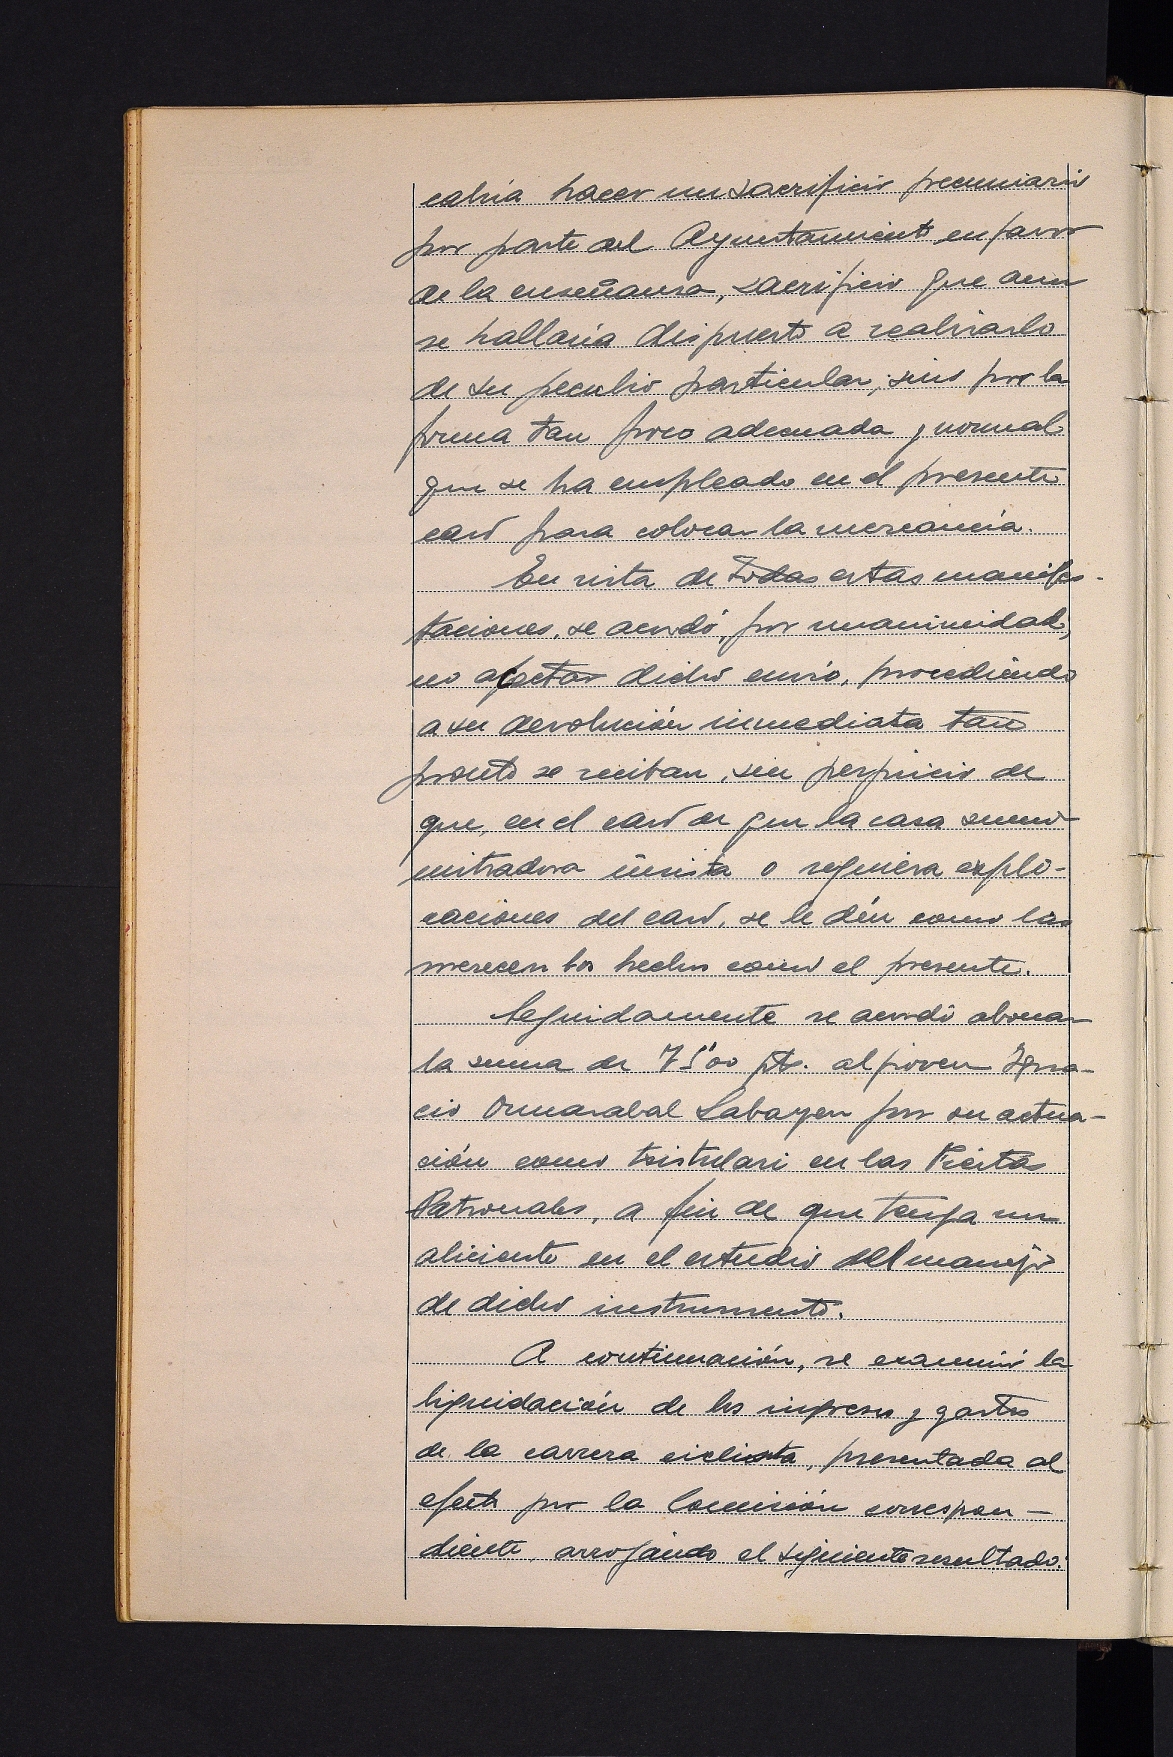 cabría hacer un sacrificio pecuniario
por parte del Ayuntamiento en favor
de la enseñanza, sacrificio que aun
se hallaría dispuesto a realizarlo
de su peculio particular, sino por la
forma tan poco adecuada y normal
que se ha empleado en el presente
caso para colocar la mercancía.
En vista de todas estas manifes-
taciones, se acordó, por unanimidad,
no aceptar dicho envío, procediendo
a su devolución inmediata tan
pronto se reciban, sin perjuicio de
que, en el caso de que la casa sumi-
nistradora insista o requiera expli-
caciones del caso, se le dén como las
merecen los hechos como el presente.
Seguidamente se acordó abonar
la suma de 75'00 pts. al joven Igna-
cio Ormazabal Labayen por su actua-
ción como txistulari en las Fiestas
Patronales, a fin de que tenga un
aliciente en el estudio del manejo
de dicho instrumento.
A continuación, se examinó la
liquidación de los ingresos y gastos
de la carrera ciclista, presentada al
efecto por la Comisión correspon-
diente, arrojando el siguiente resultado: